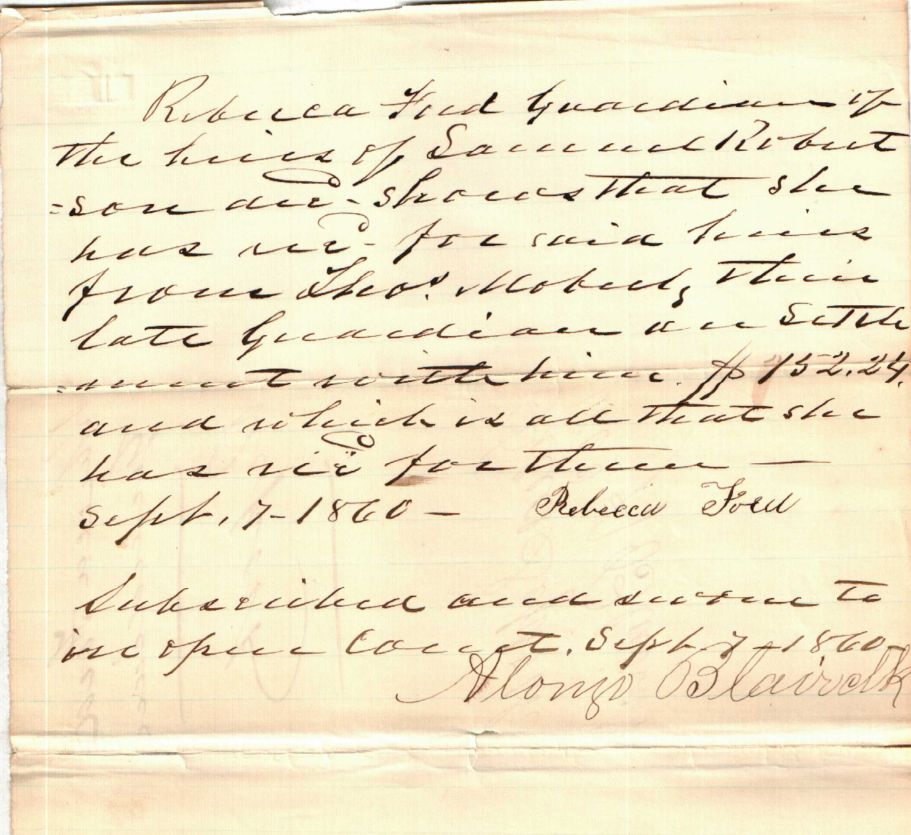 Rebecca Ford Guardian of
the heirs of Samuel Robert
=son decd - shows that she
has recd - for said heirs
from Thos. Moberly their
late Guardian on Settle
=ment with him. $152.24.
and which is all that she
has recd for them —
Sept. 7 - 1860 — Rebecca Ford
Subscribed and sworn to
in open Court. Sept. 7 - 1860
Alonzo Blair clk